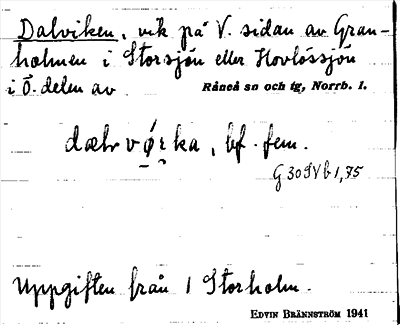 Dalviken, vik på V. sidan av Gran-
holmen i Storsjön eller Hovlössjön
i Ö. delen av Råneå sn och tg, Norrb. l.
dælv , bf. fem.
G 309 V b 1,75
Uppgiften från 1 Storholm.
EDVIN BRÄNNSTRÖM 1941